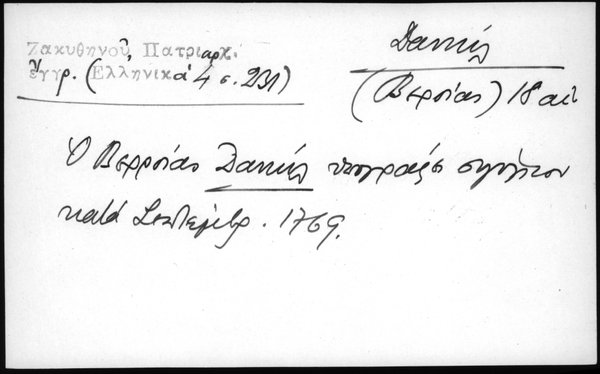 Ζακυθηνοῦ, Πατριαρχ.
ἔγγρ. (Ἑλληνικά 4 σ. 231)
Δανιήλ
(Βερροίας) 18 αἰ
Ὁ Βερροίας Δανιήλ ὑπογράφει σιγίλλιον
κατά Σεπτέμβρ. 1769.